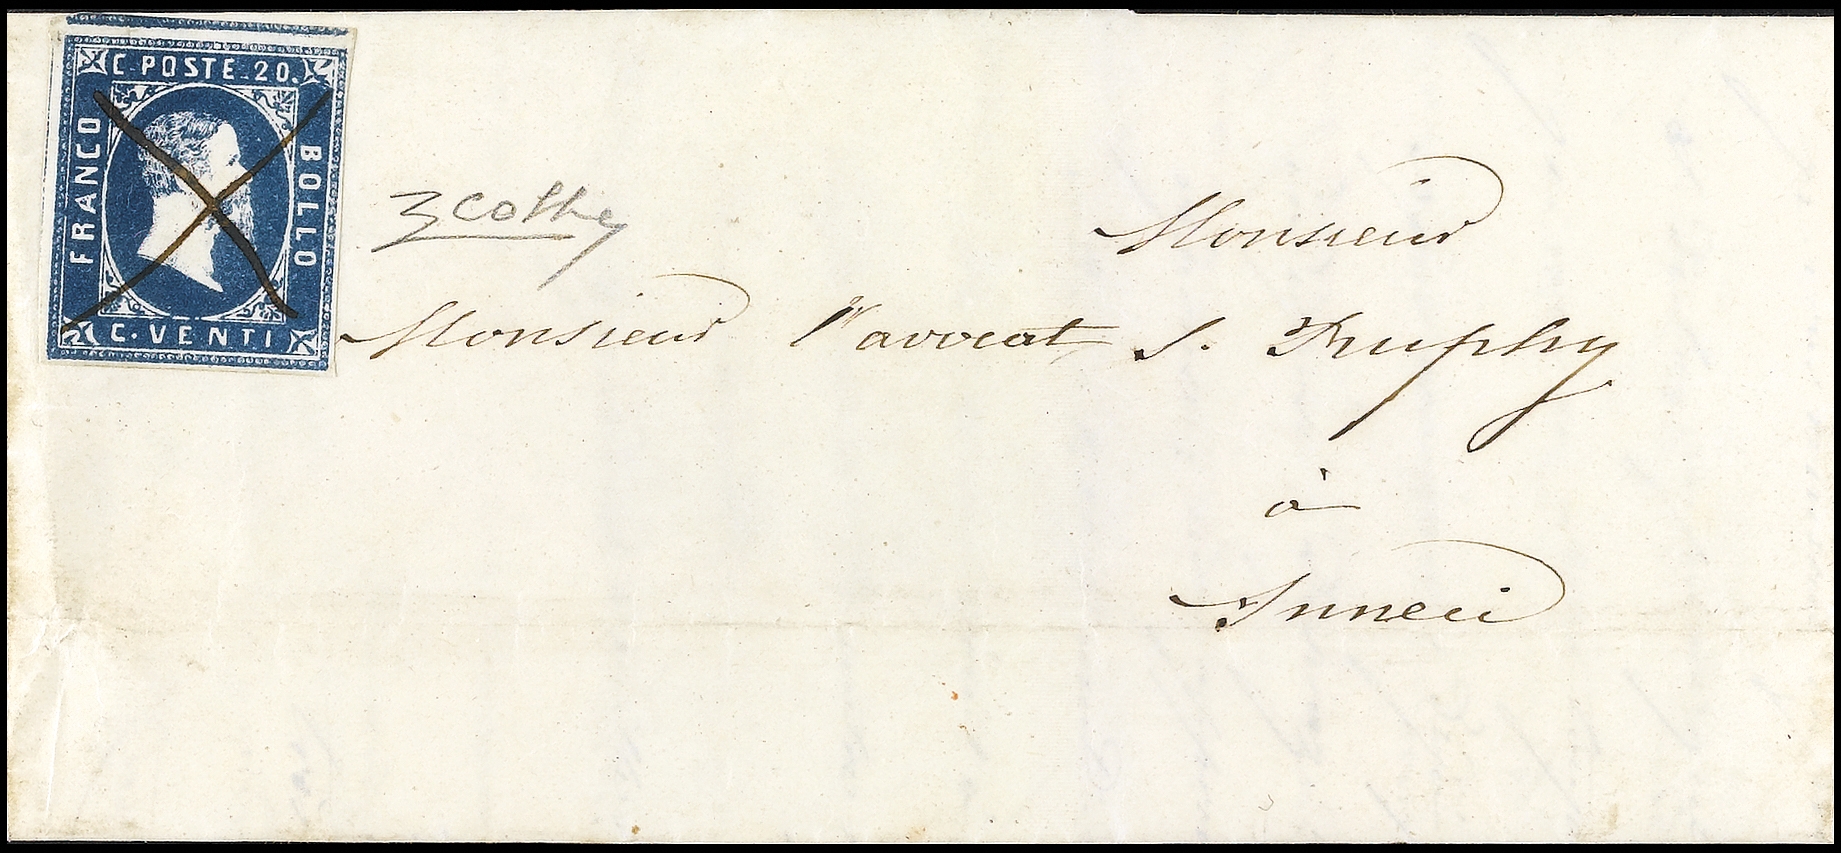 C. POSTE. 20.
FRANCO
BOLLO
C. VENTI
Monsieur
Monsieur l'avocat S. Truphy
à
Anneci